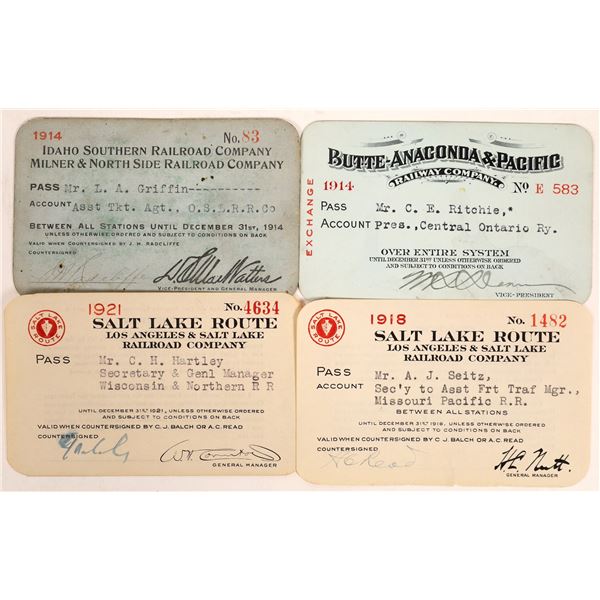 1914 No. 83
IDAHO SOUTHERN RAILROAD COMPANY
MILNER & NORTH SIDE RAILROAD COMPANY
PASS Mr. L. A. Griffin----------
ACCOUNT Asst Tkt. Agt., O.S.L.R.R.Co
BETWEEN ALL STATIONS UNTIL DECEMBER 31ST, 1914
UNLESS OTHERWISE ORDERED AND SUBJECT TO CONDITIONS ON BACK
VALID WHEN COUNTERSIGNED BY J. H. RADCLIFFE
COUNTERSIGNED
VICE-PRESIDENT AND GENERAL MANAGER
BUTTE-ANACONDA & PACIFIC
RAILWAY COMPANY.
EXCHANGE
1914 No E 583
PASS Mr. C. E. Ritchie,*
ACCOUNT Pres., Central Ontario Ry.
OVER ENTIRE SYSTEM
UNTIL DECEMBER 31ST UNLESS OTHERWISE ORDERED
AND SUBJECT TO CONDITIONS ON BACK
VICE-PRESIDENT
SALT LAKE ROUTE
1921 No. 4634
SALT LAKE ROUTE
LOS ANGELES & SALT LAKE
RAILROAD COMPANY
PASS Mr. C. H. Hartley
Secretary & Genl Manager
Wisconsin & Northern R R
UNTIL DECEMBER 31ST 1921, UNLESS OTHERWISE ORDERED
AND SUBJECT TO CONDITIONS ON BACK
VALID WHEN COUNTERSIGNED BY C. J. BALCH OR A. C. READ
COUNTERSIGNED
GENERAL MANAGER
SALT LAKE ROUTE
1918 No. 1482
SALT LAKE ROUTE
LOS ANGELES & SALT LAKE
RAILROAD COMPANY
PASS Mr. A. J. Seitz,
ACCOUNT Sec'y to Asst Frt Traf Mgr.,
Missouri Pacific R.R.
BETWEEN ALL STATIONS
UNTIL DECEMBER 31ST 1918, UNLESS OTHERWISE ORDERED
AND SUBJECT TO CONDITIONS ON BACK
VALID WHEN COUNTERSIGNED BY C. J. BALCH OR A. C. READ
COUNTERSIGNED
A C Read
H. C. Nutt.
GENERAL MANAGER